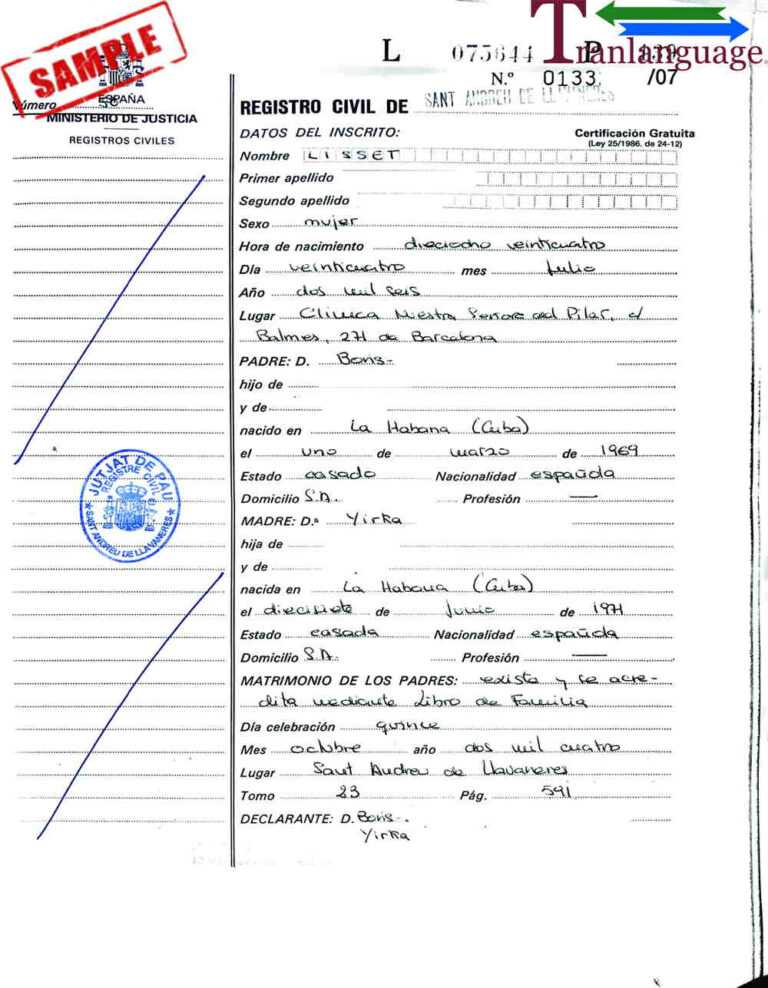 SAMPLE
Tranlanguage
L 075644 P
N.º 0133 /07
ESPAÑA
Número
MINISTERIO DE JUSTICIA
REGISTROS CIVILES
REGISTRO CIVIL DE SANT ANDREU DE
DATOS DEL INSCRITO:
Certificación Gratuita
(Ley 25/1986, de 24-12)
Nombre LISSET
Primer apellido
Segundo apellido
Sexo mujer
Hora de nacimiento dieciocho veinticuatro
Día veinticuatro mes Julio
Año dos mil seis
Lugar Clínica Nuestra Senora del Pilar, c/
Balmes, 271 de Barcelona
PADRE: D. Boris-
hijo de
y de
nacido en La Habana (Cuba)
el uno de marzo de 1969
Estado casado Nacionalidad española
Domicilio S.A. Profesión —
MADRE: D.ª Yirka
hija de
y de
nacida en La Habana (Cuba)
el diecisiete de Junio de 1971
Estado casada Nacionalidad española
Domicilio S.A. Profesión —
MATRIMONIO DE LOS PADRES: existe y se acre-
dita mediante Libro de Familia
Día celebración quince
Mes octubre año dos mil cuatro
Lugar Sant Andreu de Llavaneres
Tomo 23 Pág. 591
DECLARANTE: D. Boris-.
Yirka
JUTJAT DE PAU
REGISTRE CIVIL
SANT ANDREU DE LLAVANERES